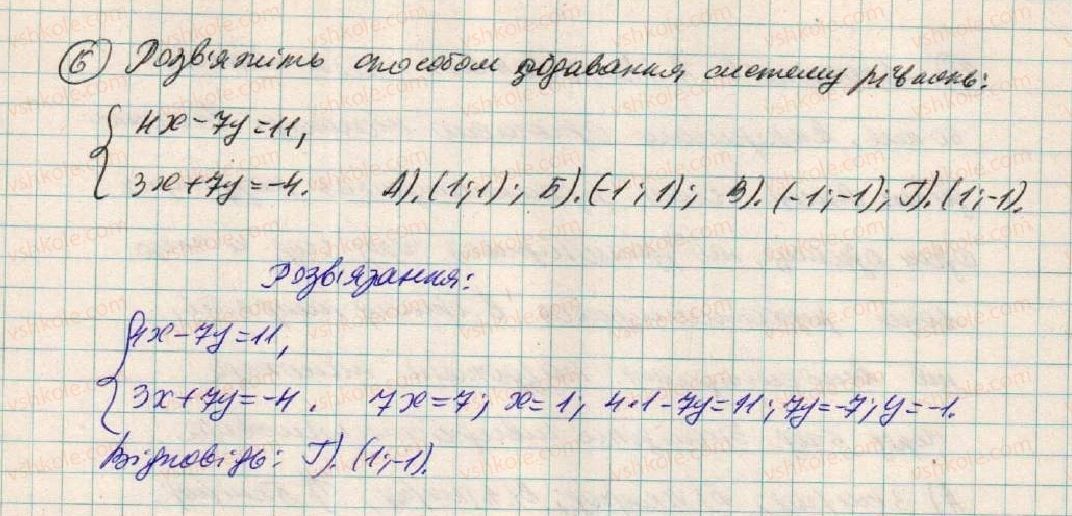 6 Розв'яжіть способом додавання систему рівнянь:
4x - 7y = 11,
3x + 7y = -4. А). (1; 1); Б). (-1; 1); В). (-1; -1); Г). (1; -1).
Розв'язання:
4x - 7y = 11,
3x + 7y = -4. 7x = 7; x = 1; 4·1 - 7y = 11; 7y = -7; y = -1.
Відповідь: Г). (1; -1).
vshkole.com